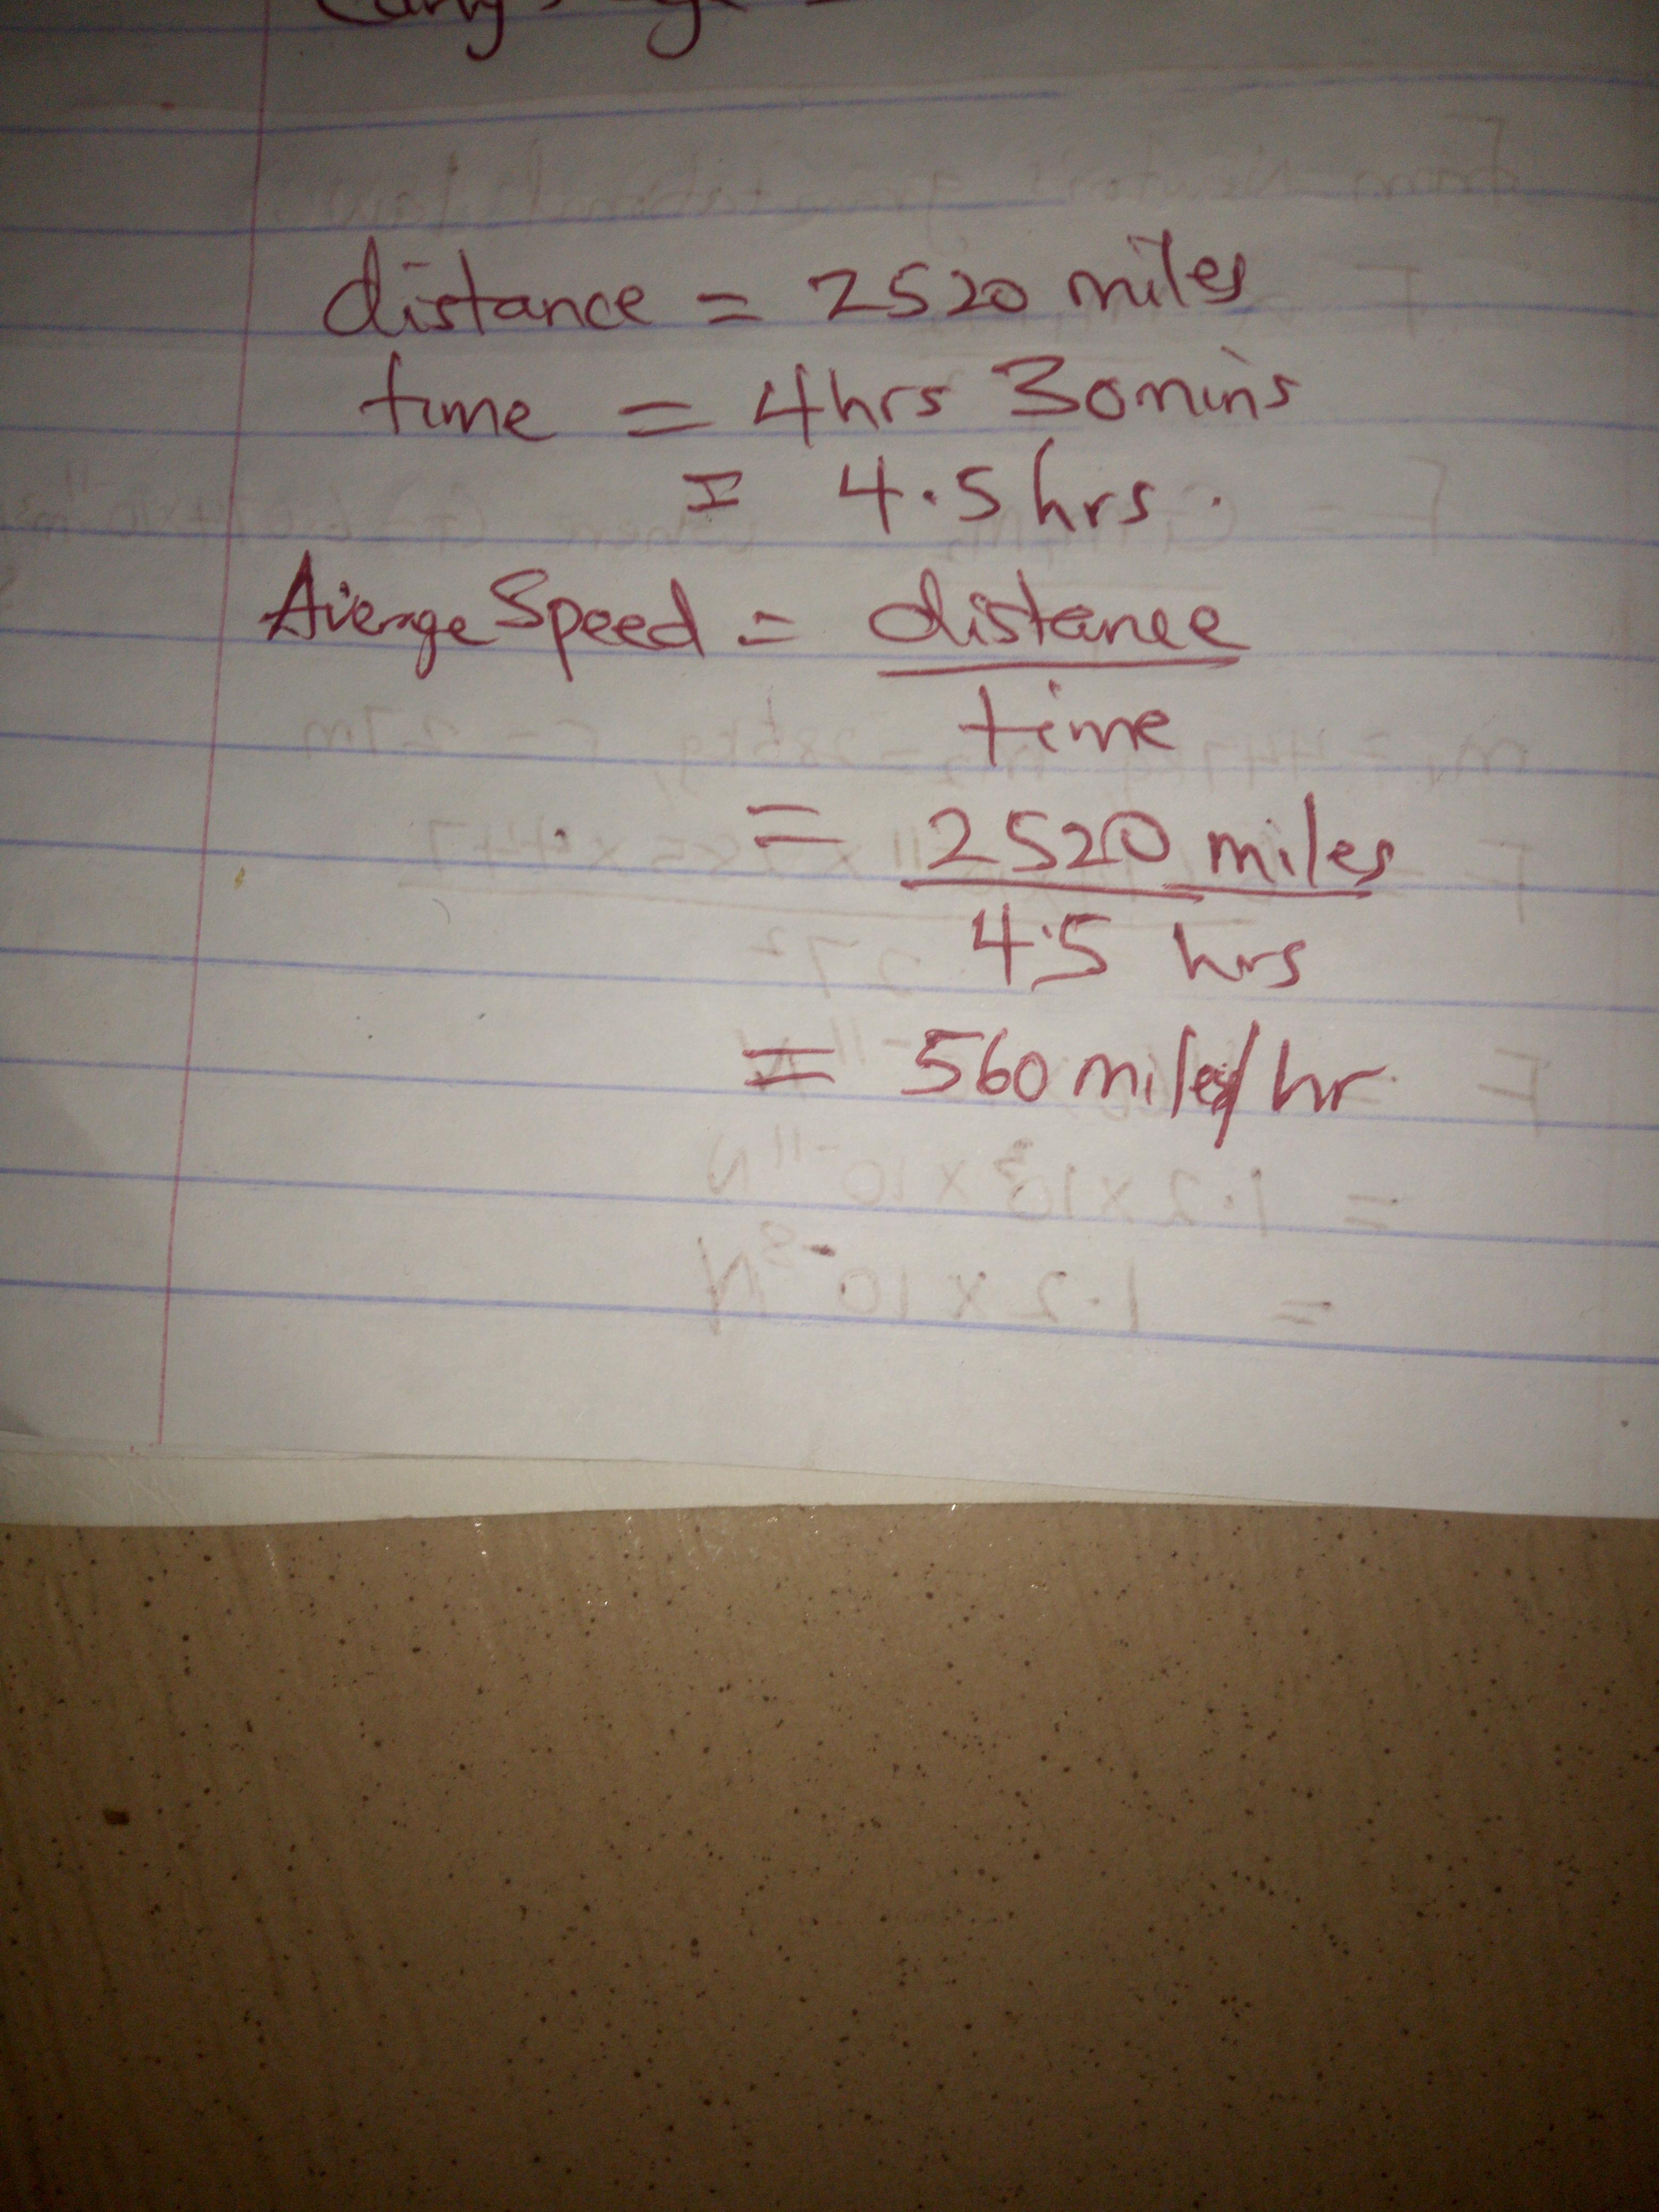 distance = 2520 miles
time = 4hrs 30mins
= 4.5 hrs.
Average Speed = distance
time
= 2520 miles
4.5 hrs
= 560 miles/hr